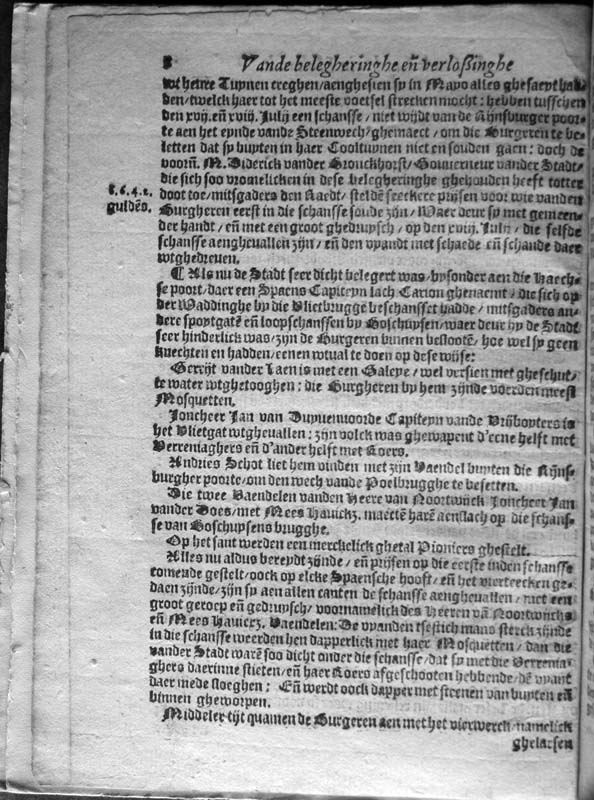 8 Vande belegheringhe, eñ verloßinghe
wt heure Tuynen creghen/aenghesien sy in Mayo alles ghesaeyt had-
den/twelck haer tot het meeste voetsel strecken mocht: hebben tusschen
den xvij. eñ xviij. Julij een schansse/ niet wijdt van de Rijnsburger poor-
te aen het eynde vande Steenwech/ghemaect/ om die Burgeren te be-
letten dat sy buyten in haer Cooltuynen niet en souden gaen: doch de
voorñ. M. Diderick vander Bronckhorst/Gouverneur vander Stadt/
die sich soo vromelicken in dese belegheringhe ghehouden heeft totter
8. 6. 4. 2.
guldēs.
doot toe/mitsgaders den Raedt/ steldē seeckere prijsen voor wie vanden
Burgheren eerst in die schansse soude zijn/ Waer deur sy met gemeen-
der handt/ eñ met een groot ghedruysch/ op den xviij. Julij/ die selfde
schansse aenghevallen zijn/ eñ den vyandt met schaede eñ schande daer
wtghedreven.
¶ Als nu de Stadt seer dicht belegert was/bysonder aen die Haech-
se poort/daer een Spaens Capiteyn lach Carion ghenaemt/ die sich op
der Waddinghe by die Vlietbrugge beschansset hadde/ mitsgaders an-
dere spoytgatē eñ loopschanssen by Boschuysen/waer deur hy de Stadt
seer hinderlich was/zijn de Burgeren binnen beslootē/ hoe wel sy geen
knechten en hadden/eenen wtual te doen op dese wijse:
Gerrijt vander Laen is met een Galeye/ wel versien met gheschut/
te water wtghetooghen: die Burgheren by hem zijnde voerden meest
Mosquetten.
Joncheer Jan van Duyuenvoorde Capiteyn vande Vrijbuyters is
het Vlietgat wtghevallen: zijn volck was ghewapent d'eene helft met
Verreniaghers eñ d'ander helft met Roers.
Andries Schot liet hem vinden met zijn Vaendel buyten die Rijns-
burgher poorte/om den wech vande Poelbrugghe te besetten.
Die twee Vaendelen vanden Heere van Noortwijck Joncheer Jan
vander Does/met Mees Hauickz. maectē harē aenslach op die schans-
se van Boschuysens brugghe.
Op het sant werden een merckelick ghetal Pioniers ghestelt.
Alles nu aldus bereydt zijnde/ eñ prijsen op die eerste inden schansse
comende gestelt/oock op elcke Spaensche hooft/ eñ het vierteecken ge-
daen zijnde/zijn sy aen allen canten de schansse aengheuallen/ met een
groot geroep eñ gedruysch/ voornamelick des Heeren vā Noortwijcks
eñ Mees Hauicxz. Vaendelen: De vyanden tsestich mans sterck zijnde
in die schansse weerden hen dapperlick met haer Mosquetten/ dan die
vander Stadt warē soo dicht onder die schansse/dat sy met die Verrenia-
ghers daerinne stieten/eñ haer Roers afgeschooten hebbende/dē vyant
daer mede sloeghen: Eñ werdt ooch dapper met steenen van buyten eñ
binnen gheworpen.
Middeler tijt quamen de Burgeren aen met het vierwerck/namelick
ghelasen